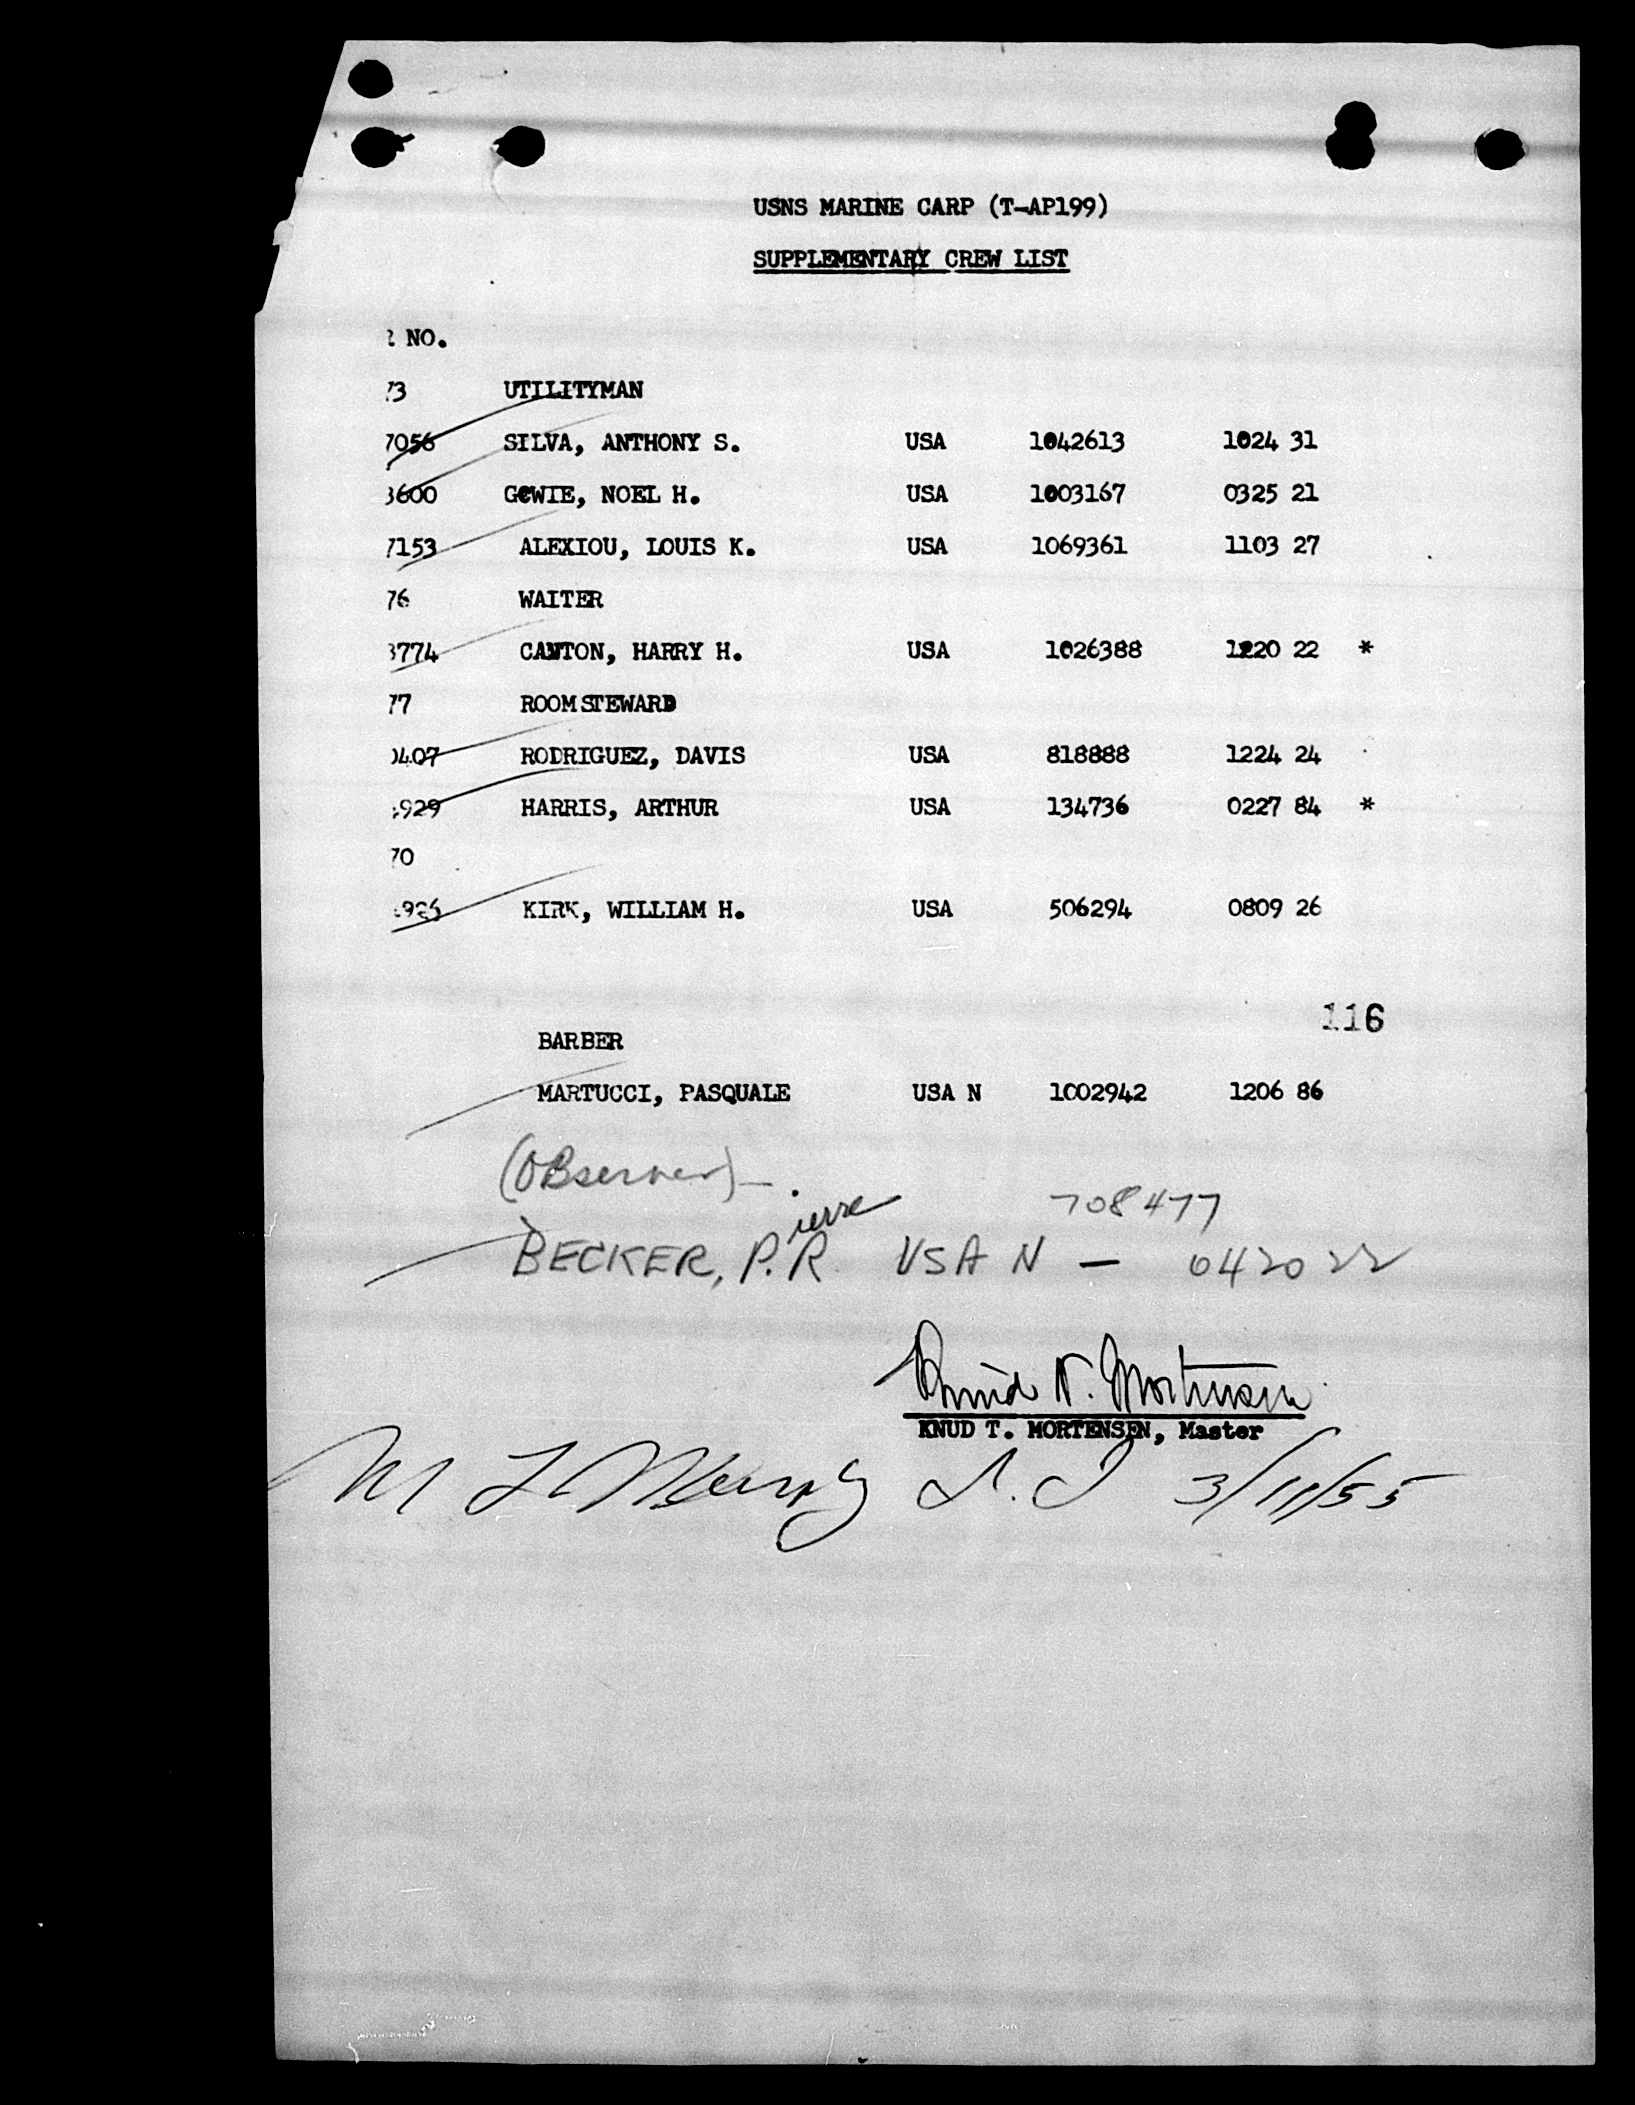 USNS MARINE CARP (T-AP199)
SUPPLEMENTARY CREW LIST
NO.
73 UTILITYMAN
7056 SILVA, ANTHONY S. USA 1042613 1024 31
3600 GOWIE, NOEL H. USA 1003167 0325 21
7153 ALEXIOU, LOUIS K. USA 1069361 1103 27
76 WAITER
3774 CANTON, HARRY H. USA 1026388 1220 22 *
77 ROOM STEWARD
0407 RODRIGUEZ, DAVIS USA 818888 1224 24
929 HARRIS, ARTHUR USA 134736 0227 84 *
70
KIRK, WILLIAM H. USA 506294 0809 26
116
BARBER
MARTUCCI, PASQUALE USA N 1002942 1206 86
(OBserver) -
ierre 708477
BECKER, P. R USA N - 042022
Knud T. Mortensen
KNUD T. MORTENSEN, Master
M L 3/11/55